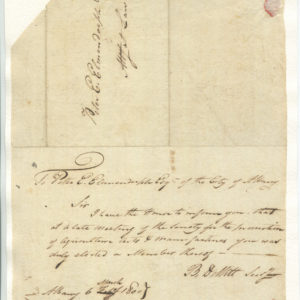 Peter E. Elmendorph Esq
Atty at Law
To Peter E. Elmendorph Esqr. of the City of Albany
Sir
I have the Honor to inform you that
at a late Meeting of the Society for the promotion
of Agriculture Arts & Manufactures you was
duly elected a Member thereof
B DeWitt Secty
Albany 6 March 180